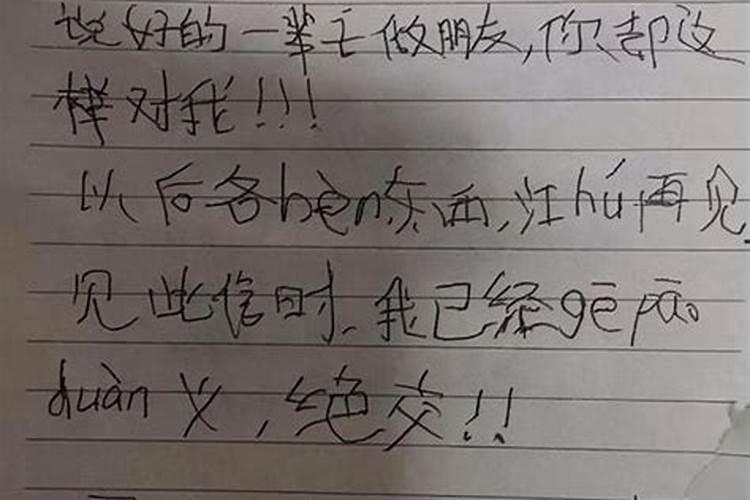 说好的一辈子做朋友,你却这
样对我!!!
以后各bèn东西,江hú再见.
见此信时,我已经gē pāo
duàn义,绝交!!